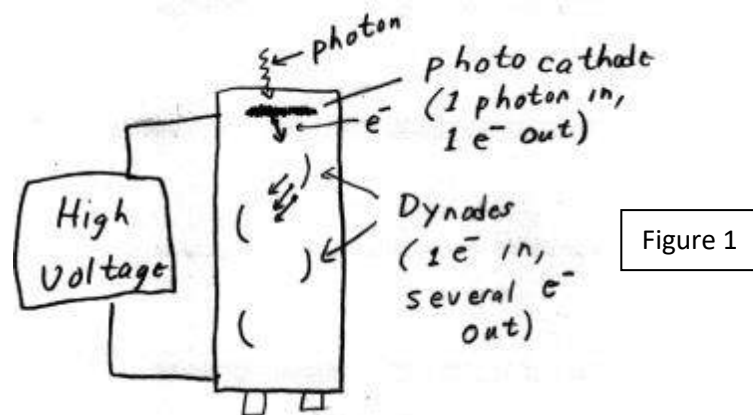 photon
photo cathode
(1 photon in,
1 e⁻ out)
e⁻
High
Voltage
Dynodes
(1 e⁻ in,
several e⁻
out)
Figure 1